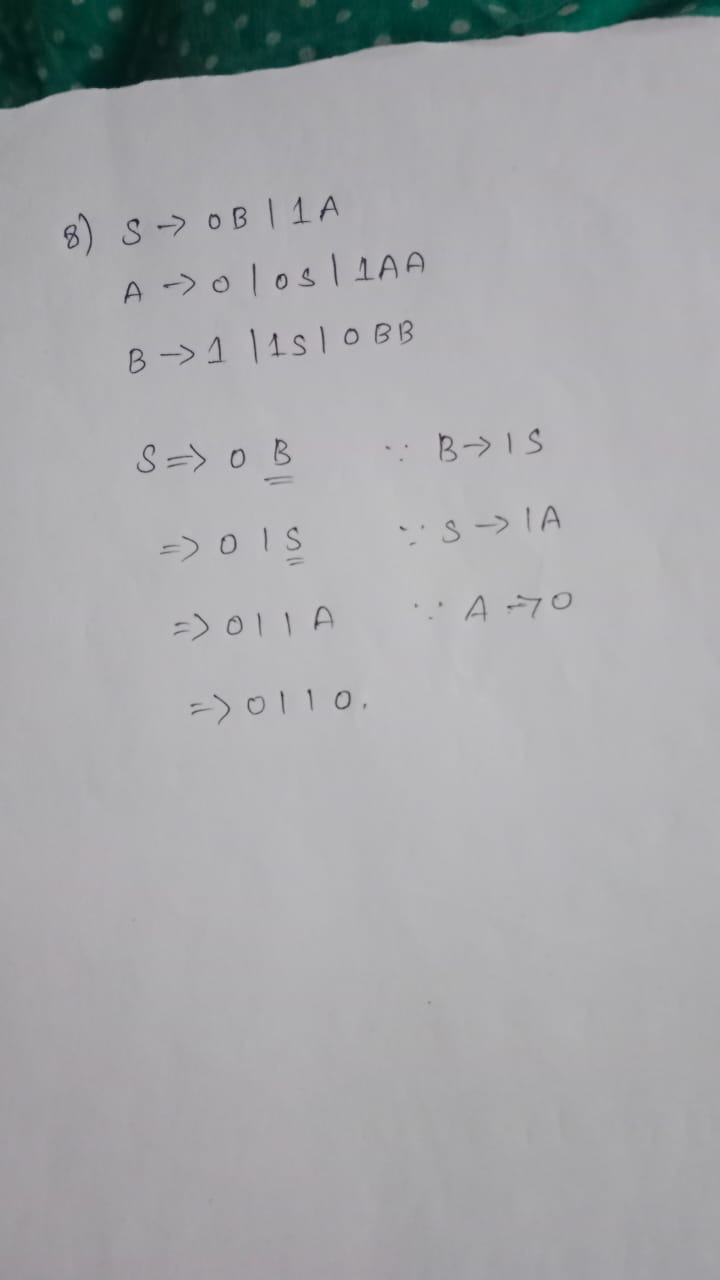 8) S → 0B | 1A
A → 0 | 0S | 1AA
B → 1 | 1S | 0BB
S ⇒ 0 B ∵ B → 1S
⇒ 0 1 S ∵ S → 1A
⇒ 0 1 1 A ∵ A → 0
⇒ 0 1 1 0.